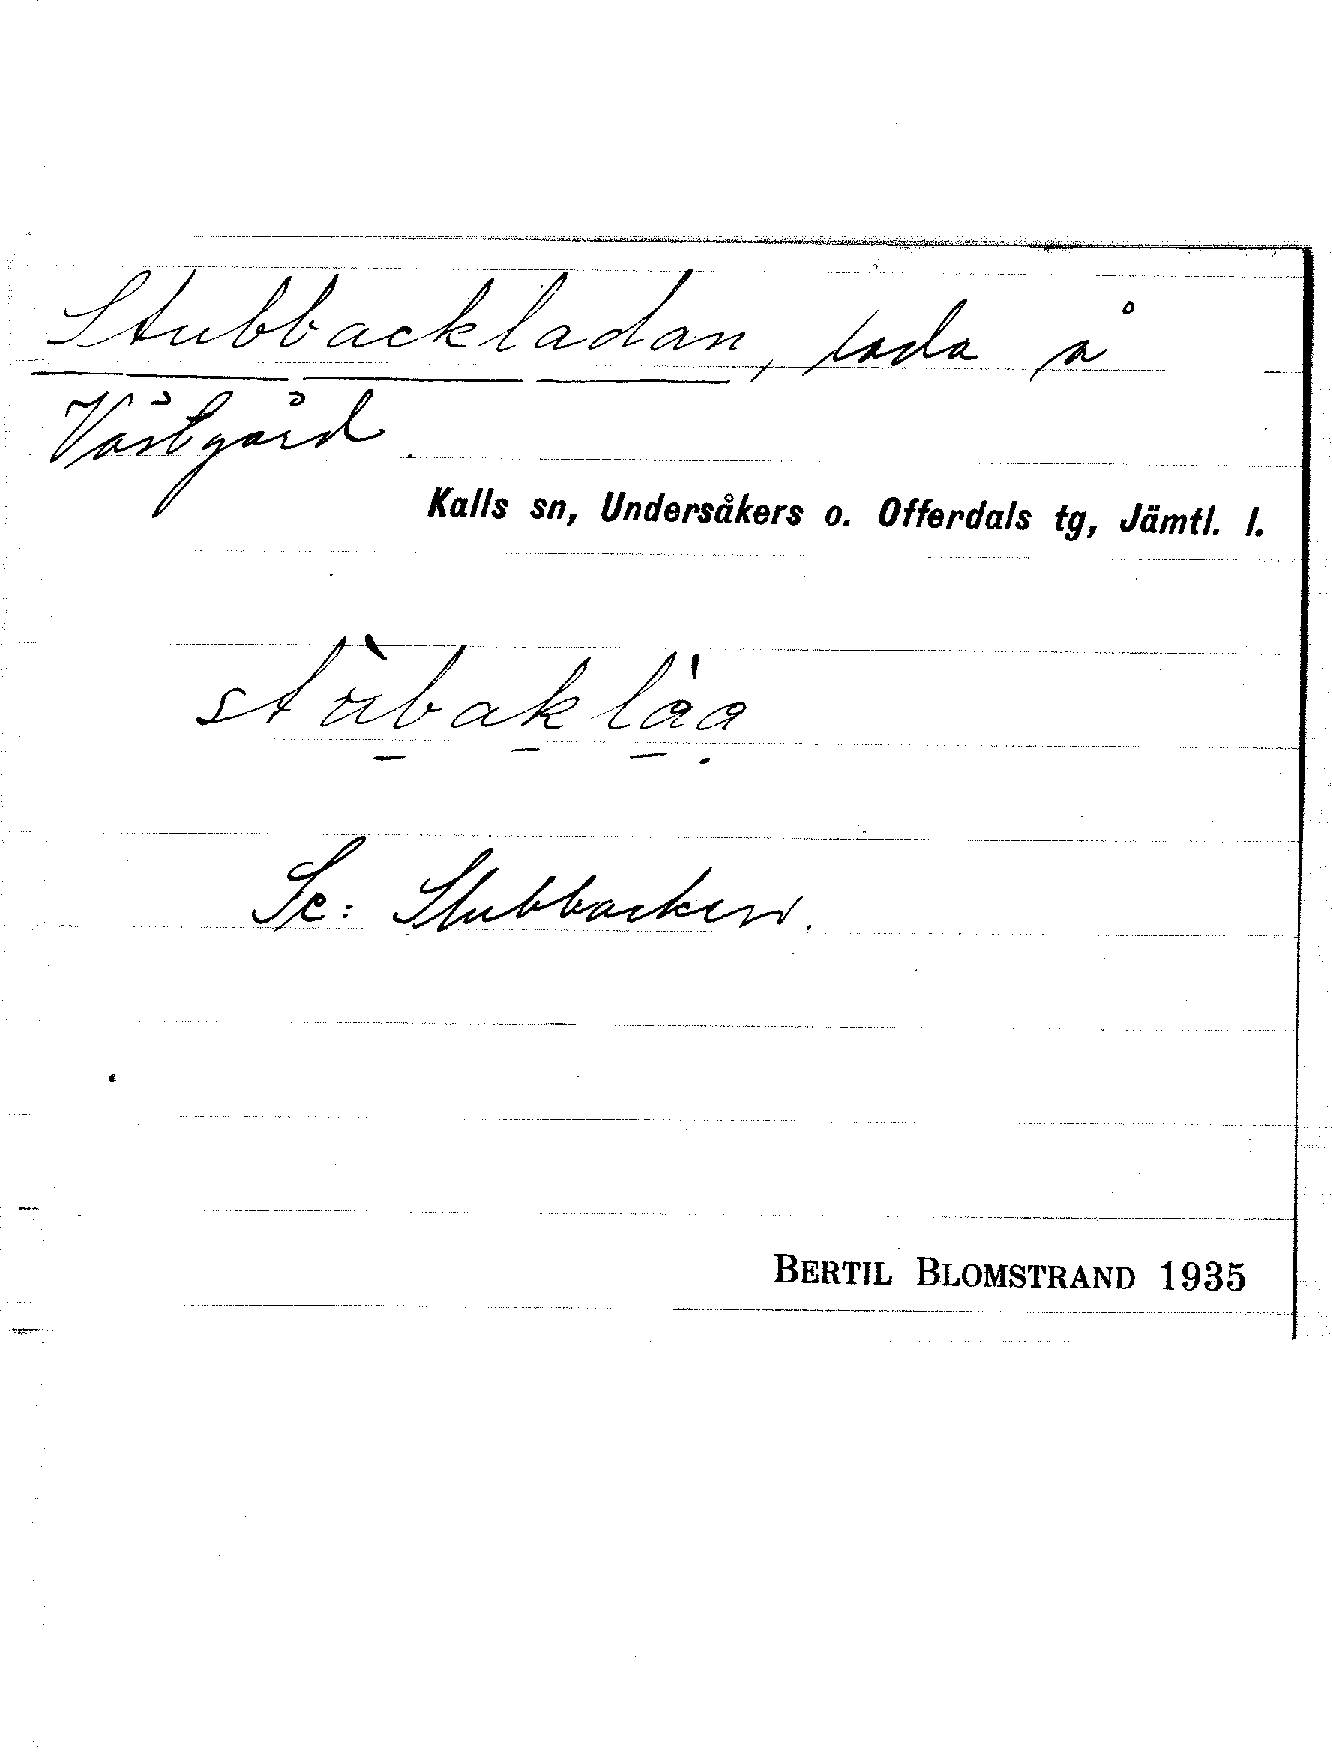 Stubbackladan, lada å
Västgård
Kalls sn, Undersåkers o. Offerdals tg, Jämtl. l.
stùbaklàa
Se: Stubbacken.
BERTIL BLOMSTRAND 1935